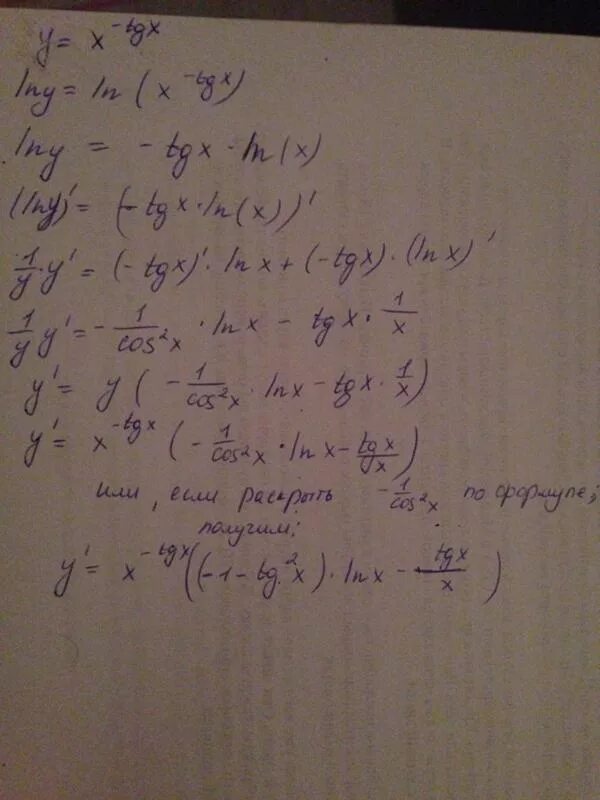 y = x^{-tgx}
lny = ln ( x^{-tgx})
lny = - tgx · ln(x)
(lny)' = (- tgx · ln(x))'
1/y · y' = (- tgx)' · lnx + (- tgx) · (lnx)'
1/y y' = - 1/cos²x · lnx - tgx · 1/x
y' = y ( - 1/cos²x · lnx - tgx · 1/x)
y' = x^{-tgx} ( - 1/cos²x · lnx - tgx/x)
или, если раскрыть - 1/cos²x по формуле,
получим:
y' = x^{-tgx} ((-1 - tg²x) · lnx - tgx/x)